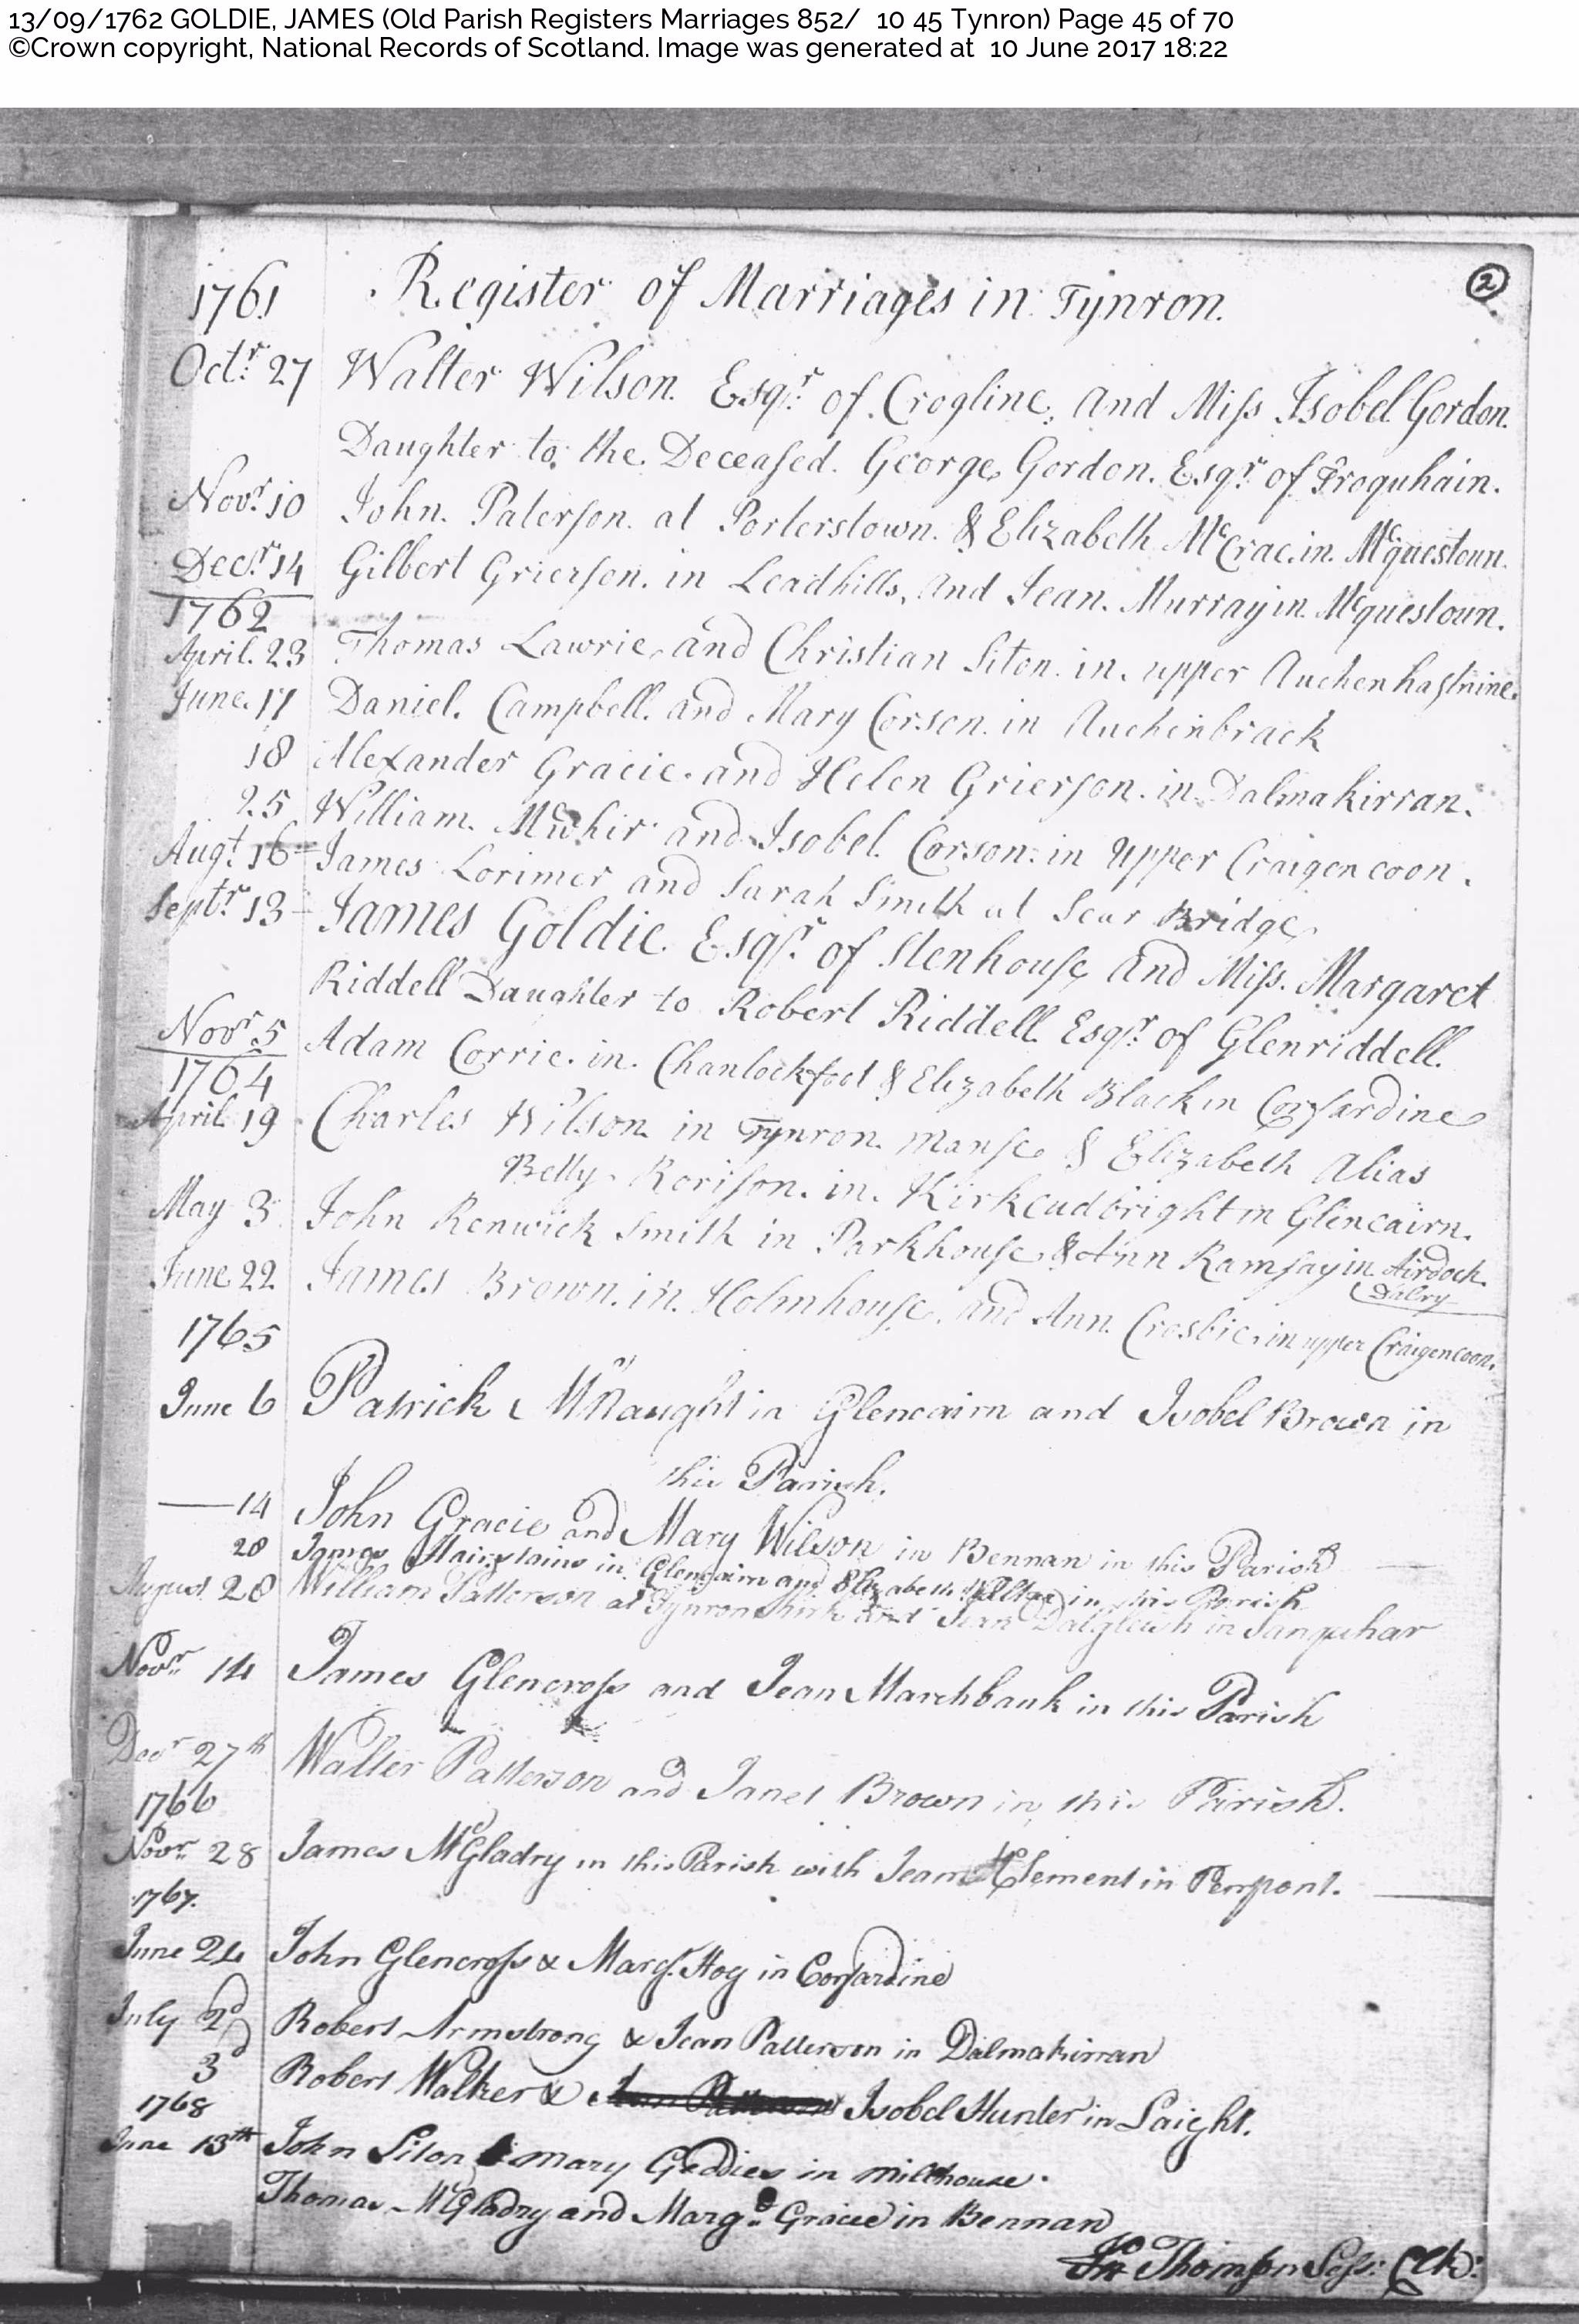 13/09/1762 GOLDIE, JAMES (Old Parish Registers Marriages 852/ 10 45 Tynron) Page 45 of 70
©Crown copyright, National Records of Scotland. Image was generated at 10 June 2017 18:22
2
1761 Register of Marriages in Tynron.
Octr. 27 Walter Wilson. Esqr. of Crogline, and Miſs Isobel Gordon.
Daughter to the Deceaſed. George Gordon. Esqr. of Troquhain.
Novr. 10 John. Paterſon at Porterstown. & Elizabeth McCrae in. Mcquestoun.
Decr. 14 Gilbert Grierſon. in Leadhills, and Jean. Murray in Mcquestoun.
1762
April. 23 Thomas Lawrie, and Christian Siton. in upper Auchenhaſtnine.
June. 17 Daniel. Campbell. and Mary Corson in Auchenbrack
18 Alexander Gracie. and Helen Grierſon. in Dalmakirran.
25 William. and Isobel. Corson. in Upper Craigencoon.
Augt. 16 James Lorimer and Sarah Smith at Scar Bridge
Septr. 13 James Goldie. Esqr. of Stenhouſe and Miſs. Margaret
Riddell Daughter to Robert Riddell. Esqr. of Glenriddell.
Novr. 5 Adam Corrie. in. Chanlockfoot & Elizabeth Black in Corſardine
1764
April. 19 Charles Wilson in Tynron. Manſe & Elizabeth Alias
Betty. Roriſon. in. Kirkcudbright in Glencairn.
May 3 John Renwick Smith in Parkhouſe & Ann Ramſay in Airdoch.
Dalry
June 22 James Brown. in. Holmhouſe. and Ann. Crosbie, in upper Craigencoon.
1765
June 6 Patrick McNaught in Glencairn and Isobel Brown in
this Parish.
—14 John Gracie and Mary Wilson in Bennan in this Parish
20 James Hairstains in Glencairn and Elizabeth in this Parish
August 20 William Patterson at Tynron Kirk and Jean Dalgleish in Sanquhar
Novr. 14 James Glencroſs and Jean Marchbank in this Parish
Decr 27th Walter Patterson and Janet Brown in this Parish.
1766
Novr. 28 James McGladry in this Parish with Jean Clement in Penpont.
1767.
June 24 John Glencroſs & Margt. Hog in Corſardine
July 2d Robert Armstrong & Jean Patterson in Dalmakirran
3d Robert Walker & Jean Patterson Isobel Hunter in Laight.
1768
June 13th John Siton & Mary Geddies in Millhouse.
Thomas McGladry and Margt. Gracie in Bennan
Jo Thomſon Seſs: Clk: